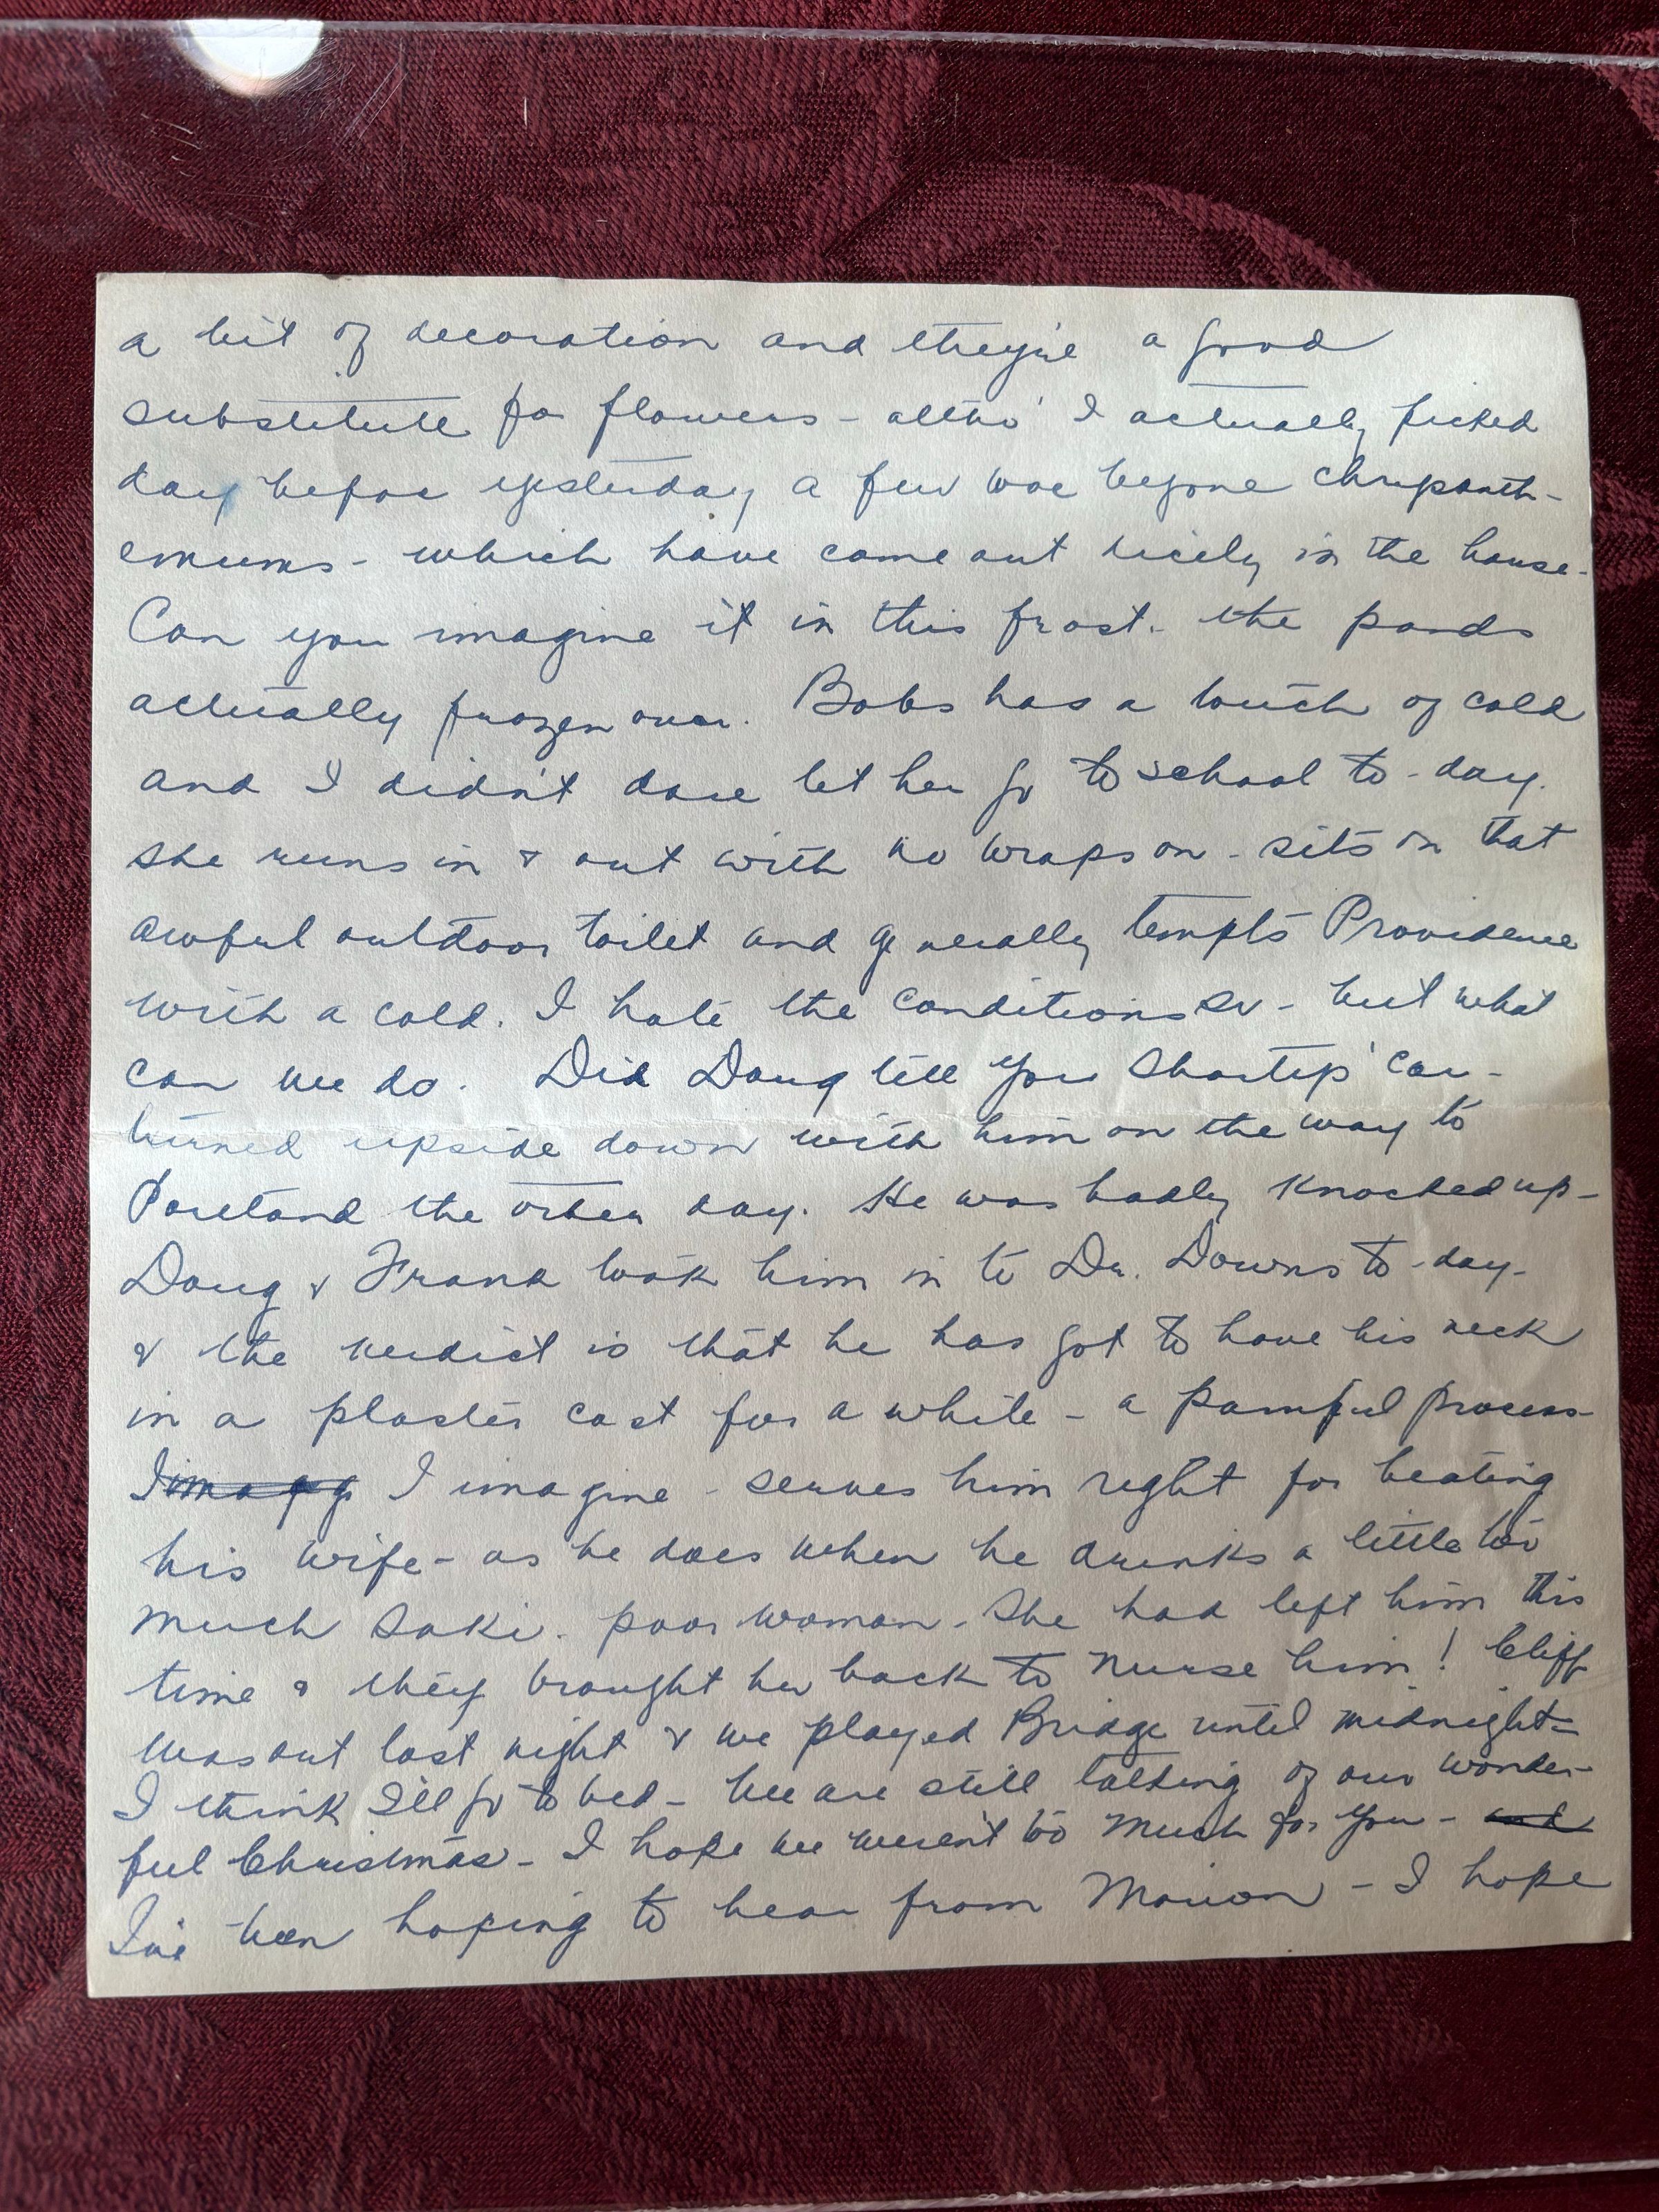 a bit of decoration and they're a good
substitute for flowers - altho' I actually picked
day before yesterday a few woe begone chrysanth-
emums - which have come out nicely in the house.
Can you imagine it in this frost. the ponds
actually frozen over. Bobs has a touch of cold
and I didn't dare let her go to school to-day.
she runs in & out with no wraps on - sits on that
awful outdoor toilet and generally tempts Providence
with a cold. I hate the conditions so - but what
can we do. Did Doug tell you car -
turned upside down with him on the way to
Portland the other day. He was badly knocked up -
Doug & Frank took him in to Dr. Downs to-day -
& the verdict is that he has got to have his neck
in a plaster cast for a while - a painful process
I imagine - serves him right for beating
his wife - as he does when he drinks a little too
much Saki. poor woman - She had left him this
time & they brought her back to nurse him! Cliff
was out last night & we played Bridge until midnight -
I think I'll go to bed - We are still talking of our wonder-
ful Christmas - I hope we weren't too much for you - and
I've been hoping to hear from Marion - I hope